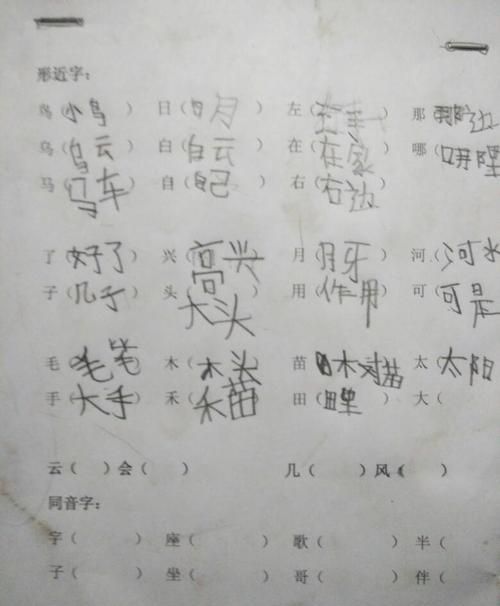 形近字：
鸟（小鸟） 日（日月） 左（左手） 那（那边
乌（乌云） 白（白云） 在（在家） 哪（哪里
马（马车） 自（自己） 右（右边）
了（好了） 兴（高兴） 月（月牙） 河（河水
子（几子） 头（大头） 用（作用） 可（可是
毛（毛笔） 木（木头） 苗（ 太（太阳
手（大手） 禾（禾苗） 田（田里） 大（
云（ ）会（ ） 几（ ）风（ ）
同音字：
字（ ） 座（ ） 歌（ ） 半（
子（ ） 坐（ ） 哥（ ） 伴（